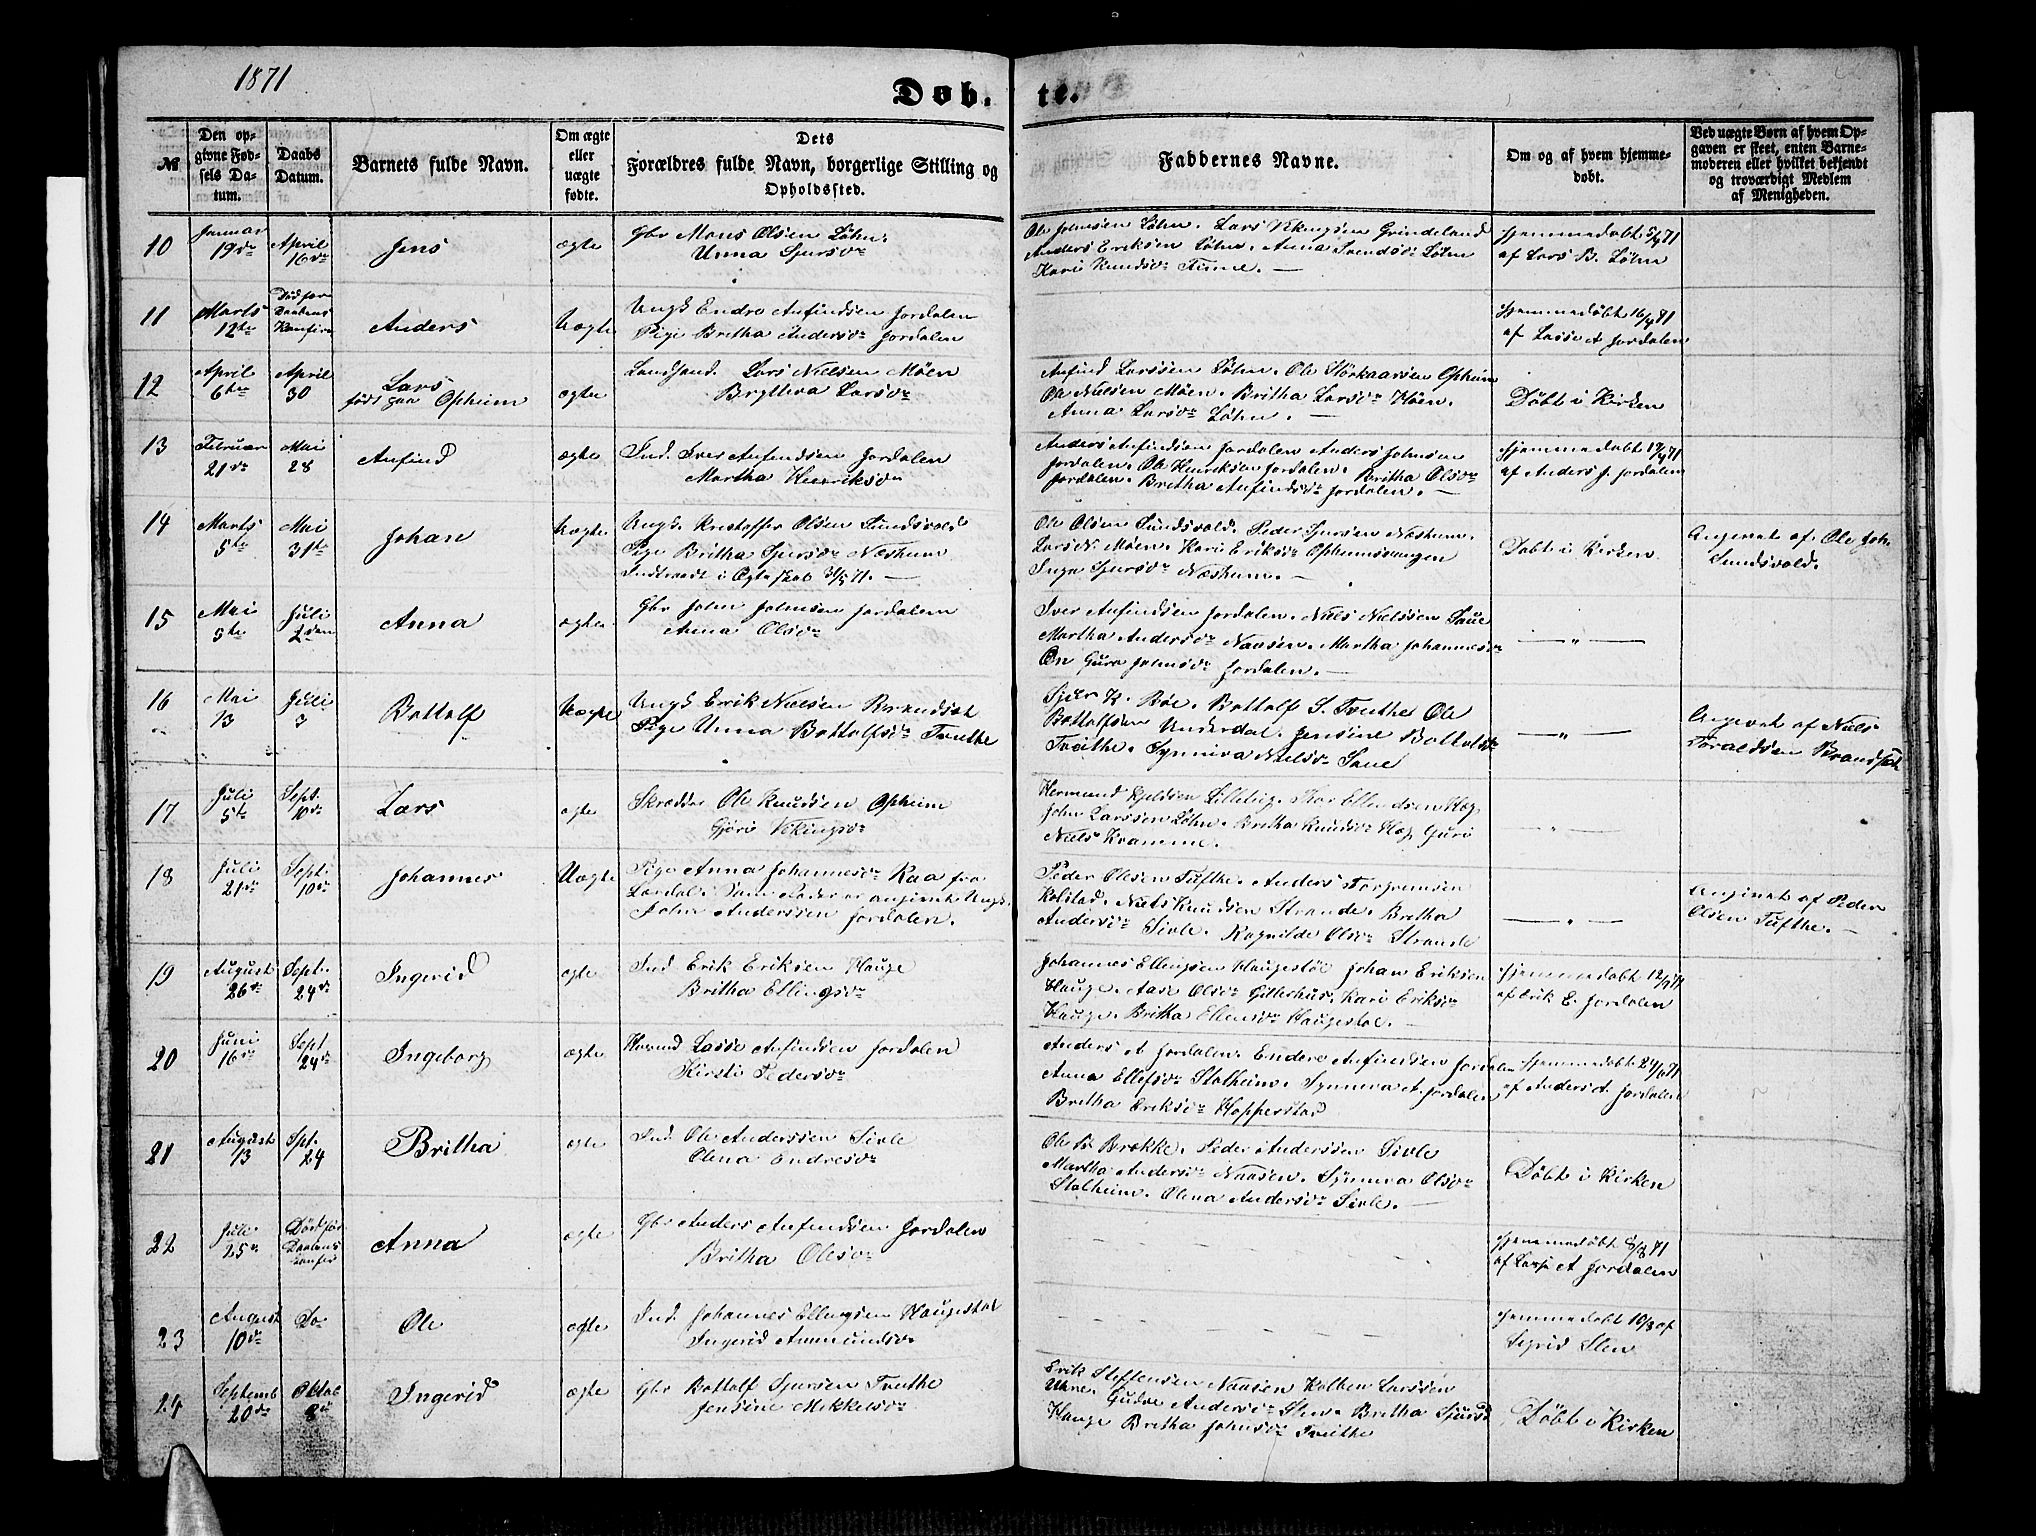 1871
Døb-te.
№
Den op-
givne Fød-
sels Da-
tum.
Daabs
Datum.
Barnets fulde Navn.
Om ægte
eller
uægte
fødte.
Dets
Forældres fulde Navn, borgerlige Stilling og
Opholdssted.
Faddernes Navne.
Om og af hvem hjemme-
døbt.
Ved uægte Børn af hvem Op-
gaven er skeet, enten Barne-
moderen eller hvilket bekjendt
og troværdigt Medlem
af Menigheden.
10 Januar 19de April 16de Jens ægte
Gbr Mons Olsen Løhn.
Unna Sjursdr
Ole Johnsen Løhn. Lars Vikingsen Grindeland
Anders Eriksen Løhn. Anna Svendsdr Løhn
Kari Knudsdr Finne. —
Hjemmedøbt 5/4 71
af Lars B. Løhn
11 Marts 12te Død før Daabens Confirm Anders Uægte
Ungk Endre Anfindsen Jordalen
Pige Britha Andersdr Jordalen
Hjemmedøbt 16/4 71
af Lasse A Jordalen
12 April 6te April 30 Lars
født paa Opheim ægte
Lars Nielsen Møen
Brytteva Larsdr
Anfind Larssen Løhn. Ole Størkaarsen Opheim
Ole Nielsen Møen. Britha Larsdr Høen.
Anna Larsdr Løhn. —
Døbt i Kirken
13 Februar 21de Mai 28 Anfind ægte
Ind. Iver Anfindsen Jordalen
Martha Henriksdr
Anders Anfindsen Jordalen Anders Johnsen
Jordalen. Ole Henriksen Jordalen. Britha Olsdr
Jordalen. Britha Anfindsdr Jordalen. —
Hjemmedøbt
af Anders J. Jordalen
14 Marts 5te Mai 31te Johan Uægte
Ungk. Kristoffer Olsen Sundsvold
Pige Britha Sjursdr Næshum
Indtraadt i Ægteskab 31/5 71. —
Ole Olsen Sundsvold. Peder Sjursen Næshum.
Lars N. Møen. Kari Eriksdr Opheimsvangen
Inga Sjursdr Næshum. —
Døbt i Kirken.
Angivet af Ole Joh.
Sundsvold.
15 Mai 5te Juli 2den Anna ægte
Gbr John Johnsen Jordalen
Anna Olsdr
Iver Anfindsen Jordalen. Niels Nielssen Saue
Martha Andersdr Naasen. Martha Johannesdr
Øn Guro Johnsdr Jordalen. —
— " —
16 Mai 13 Juli 3 Bottolf Uægte
Ungk Erik Nielsen Brandset
Pige Unna Bottolfsdr Tvuthe
Sjur K. Bøe. Bottolf S. Tvuthe Ole
Bottolfsen Underdal. Jensine Bottolsdr
Tvuthe. Synniva Nielsdr Saue
— " —
Angivet af Niels
Toraldsen Brandset
17 Juli 5te Sept. 10de Lars ægte
Skrædder Ole Knudsen Opheim
Gjøri Vikingsdr
Hermund Kjeldsen Lillebig. Thor Ellendsen Hæg
John Larssen Løhn. Britha Knudsdr Hæg Guri
Niels Kramme.
— " —
18 Juli 21de Sept. 10de Johannes Uægte
Pige Anna Johannesdr Raa fra
Lærdal. Som Fader er angivet Ungk.
John Anderssen Jordalen.
Peder Olesen Tufthe. Anders Torgrimsen
Kolstad. Niels Knudsen Strande. Britha
Andersdr Sivle. Ragnilde Olsdr Strande
— " —
Angivet af Peder
Olsen Tufthe. —
19 August 26de Sept. 24de Ingerid ægte
Ind Erik Eriksen Hauge
Britha Ellingsdr
Johannes Ellingsen Haugestøl Johan Eriksen
Hauge. Aase Olsdr Gillerhus. Kari Eriksdr
Hauge. Britha Ellensdr Haugestøl. —
Hjemmedøbt 12/9 71
af Erik E. Jordalen
20 Juni 16de Sept 24de Ingeborg ægte
Lasse Anfindsen Jordalen
Kirsti Pedersdr
Anders A Jordalen. Endre Anfindsen Jordalen
Anna Ellefsdr Stalheim. Synniva A. Jordalen
Britha Eriksdr Hopperstad
Hjemmedøbt 24/6 71
af Anders A. Jordalen
21 August 13 Spt. 24 Britha ægte
Ind. Ole Anderssen Sivle
Olena Endresdr
Ole Brække. Peder Anderssen Sivle
Martha Andersdr Naasen. Synniva Olsdr
Stalheim. Olena Andersdr Sivle. —
Døbt i Kirken
22 Juli 25de Død før Daabens Confir Anna ægte
Gbr Anders Anfindsen Jordalen
Britha Olesdr
Hjemmedøbt 8/8 71
af Lasse A Jordalen
23 August 10de Do Ole ægte
Ind. Johannes Ellingsen Haugestøl
Ingerid Ammundsdr
Hjemmedøbt 10/8 af
Sigrid Slen
24 Septemb 20de Oktob 8de Ingerid ægte
Gbr Bottolf Sjursen Tvuthe
Jensine Mikkelsdr
Erik Steffensen Naasen Kolben Larssen
Uhne. Gudve Andersdr Slen. Britha Sjursd
Hauge Britha Johnsdr Tvuthe
Døbt i Kirken